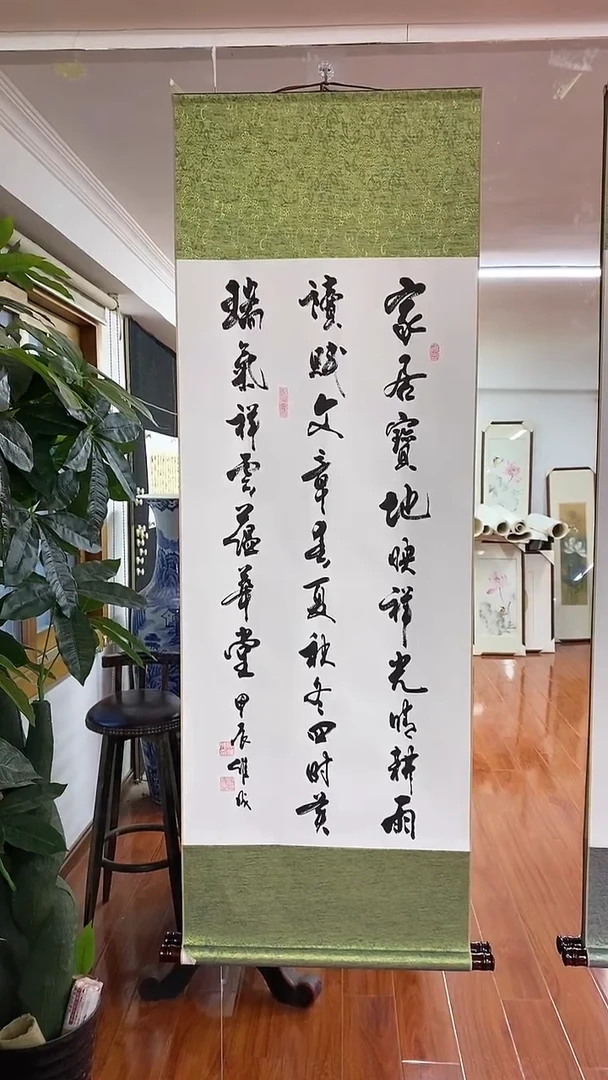 家居寶地映祥光晴耕雨
讀賦文章春夏秋冬四时美
瑞氣祥雲蘊華堂
甲辰